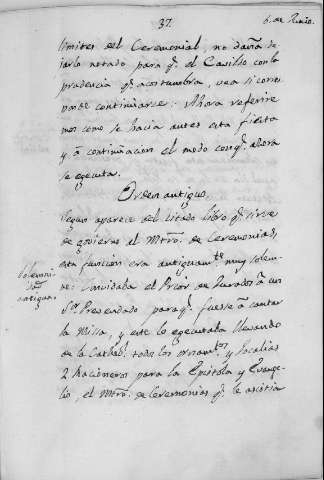 37.
6. de Junio.
limites del Ceremonial, no dañá de
jarlo notado para q.e el Cavildo con la
prudencia q.e acostumbra, vea si corres
ponde continuarse: Ahora referire
mos como se hacia antes esta fiesta
y á continuacion el modo con q.e ahora
se egecuta.
Orden antiguo.
Segun aparece del citado libro q.e sirve
de govierno al Mtro. de Ceremonias,
esta funcion era antiguam.te muy solem-
ne: Convidaba el Prior de Jurados á un
S.or Presendado para q.e fuese á cantar
la Misa, y este lo egecutaba llevando
de la Cathed.l todos los ornam.tos y Jocalias
2 Racioneros para la Epistola y Evange-
lio, el Mtro. de Ceremonias q.e le asistia
Solemni
dad
antigua.